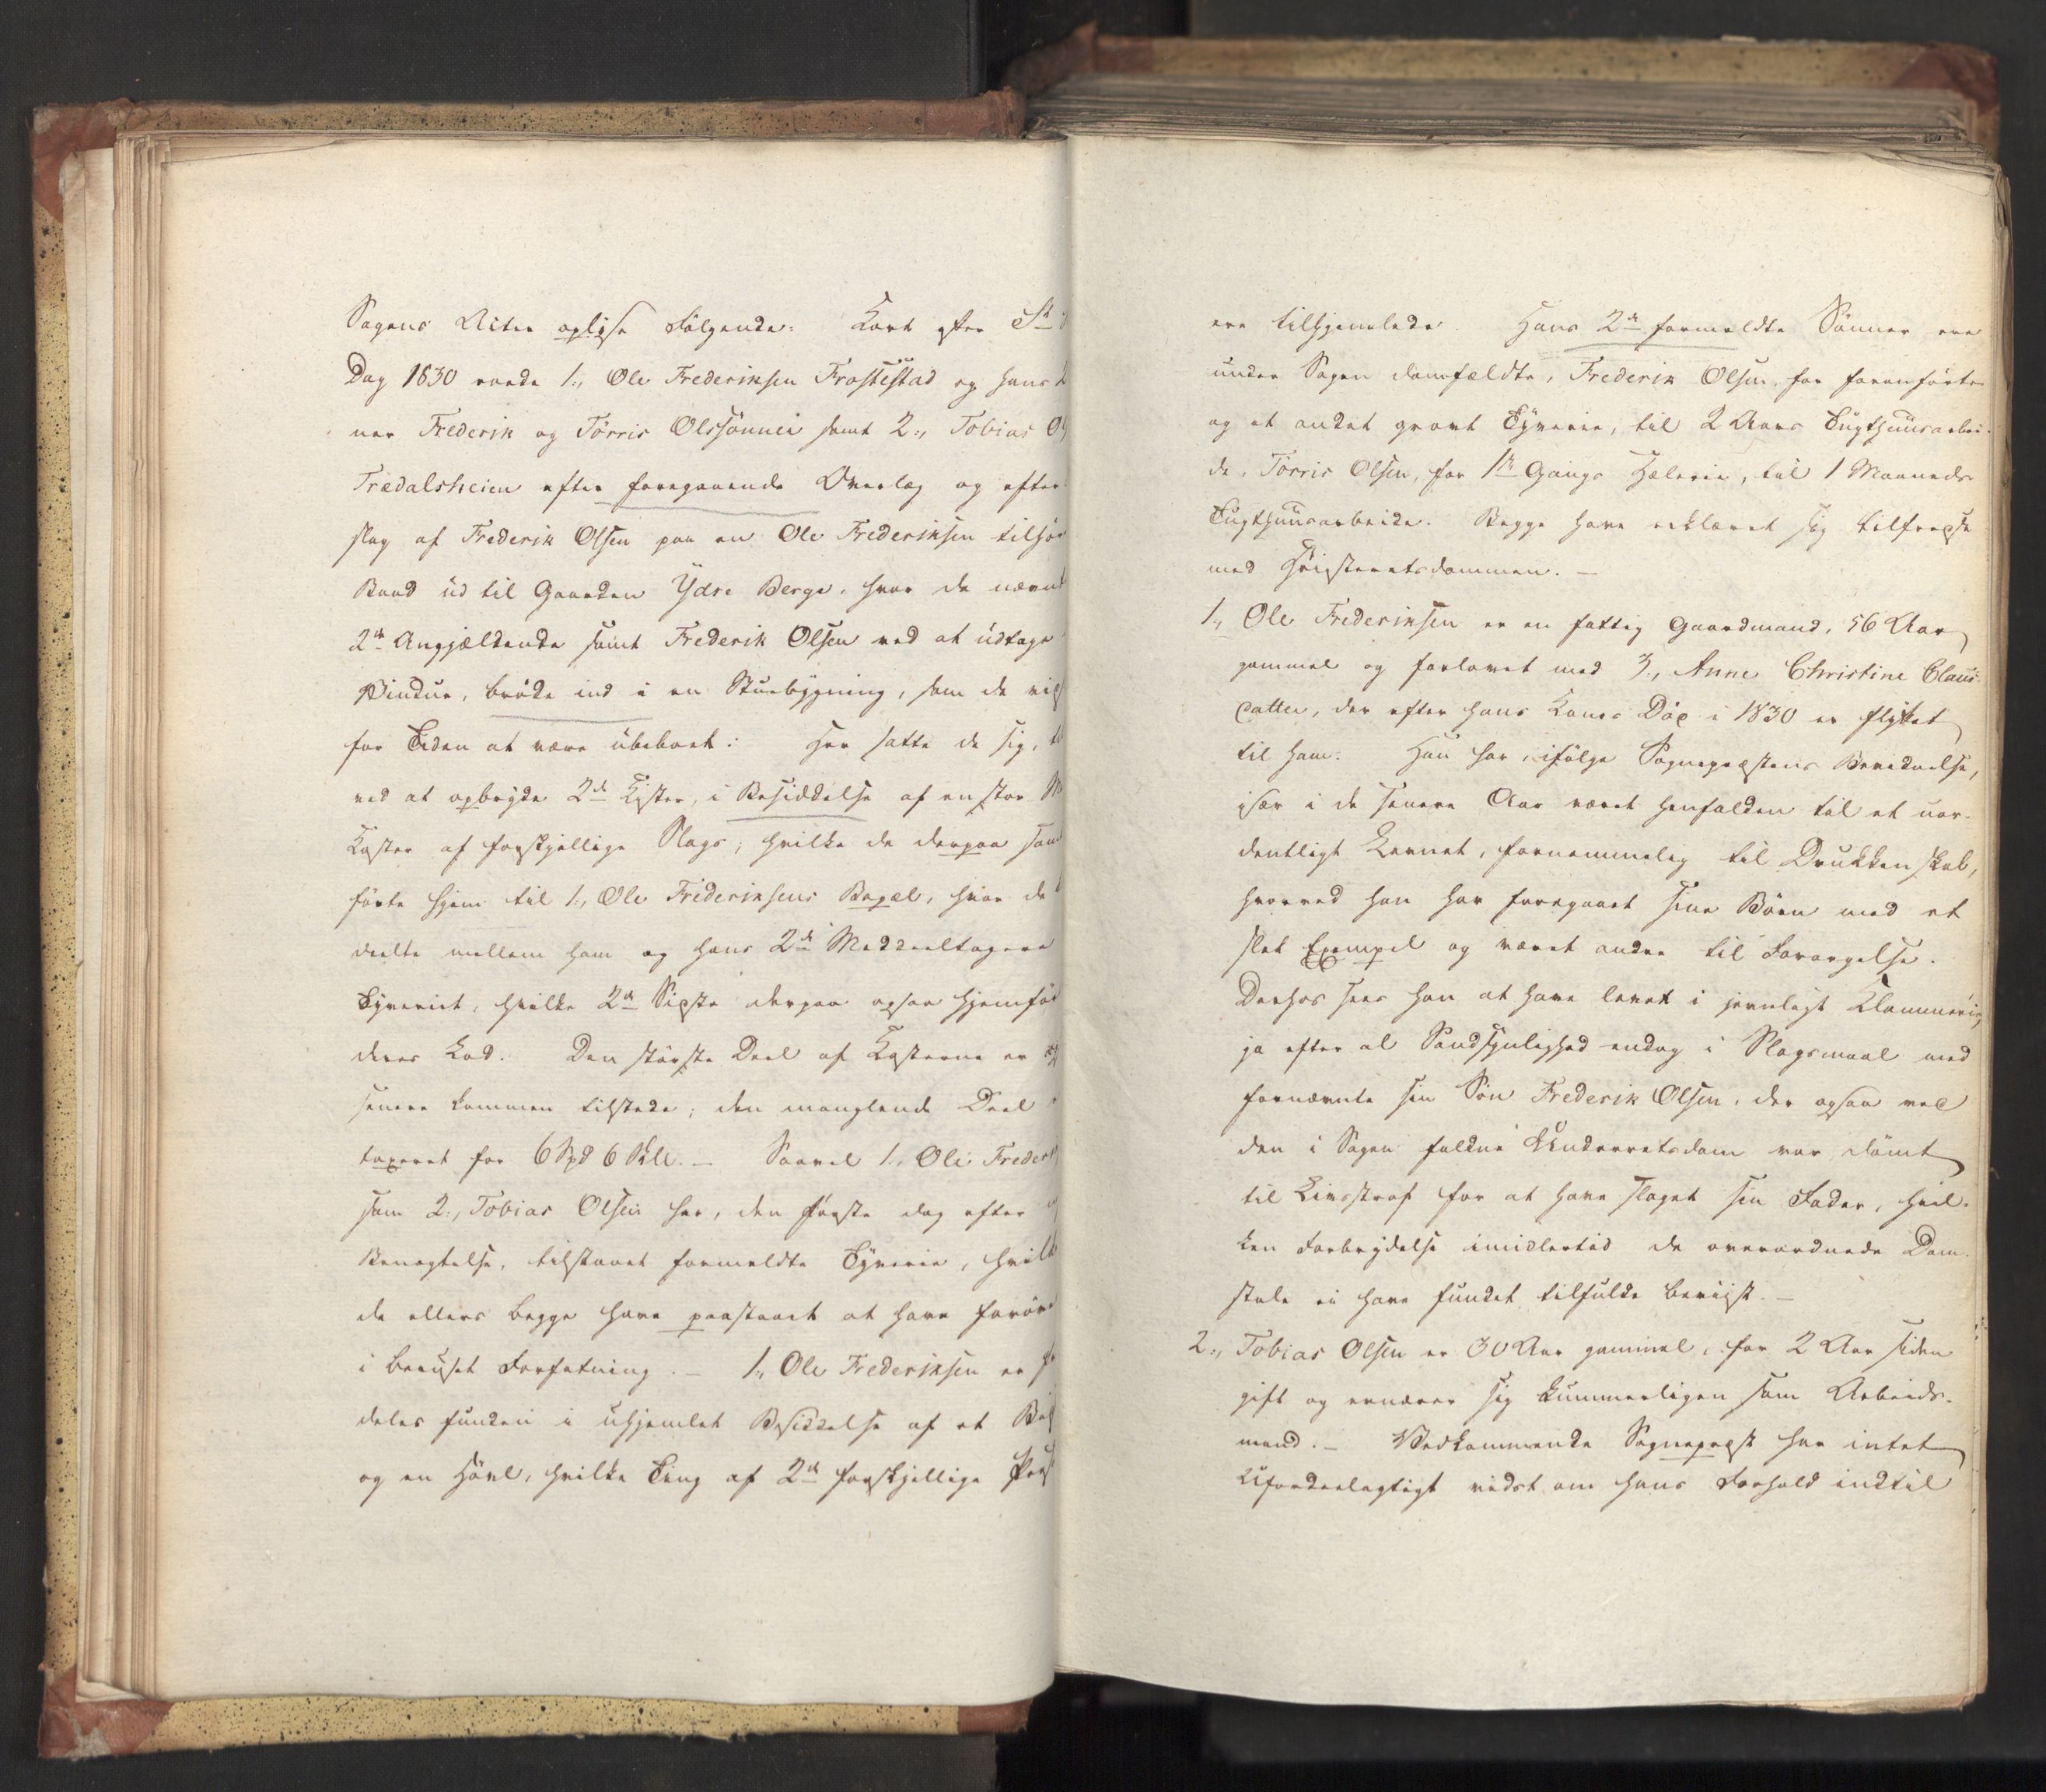 Sagens Acter oplyse Følgende: Kort efter St
Dag 1830 roede 1., Ole Frederiksen Frøstestad og hans
ner Frederik og Tørris Olssønner samt 2., Tobias
Tredalsheien efter foregaaende Overlæg og efter
slag af Frederik Olsen paa en Ole Frederiksen
Baad ud til Gaarden Ydre Berge, hvor de
2de Angjældende samt Frederik Olsen ved at udtage
Vindue, brøde ind i en Stuebygning, som de
for Tiden at være ubeboet: Her satte de sig,
ved at opbryde 2de Kister, i Besiddelse af en stor
Koster af forskjellige Slags, hvilke de derpaa
førte hjem til 1., Ole Frederiksens Bopæl, hvor de
deelte mellem ham og hans 2de Meddeeltagere
Tyveriet, hvilke 2de Sidste derpaa ogsaa
deres Lod. Den største Deel af Kosterne er
senere kommen tilstede; den manglende Deel
taxeret for 6 Spd 6 Skl. – Saavel 1., Ole
som 2., Tobias Olsen har, den første dog efter
Benægtelse, tilstaaet formeldte Tyverie,
de ellers begge have paastaaet at have
i beruset Forfatning. – 1., Ole Frederiksen er
deles funden i uhjemlet Besiddelse af et
og en Høvl, hvilke Ting af 2de forskjellige
ere tilhjemlede. Hans 2de formeldte Sønner ere
under Sagen domfældte, Frederik Olsen, for foranførte
og et andet grovt Tyverie, til 2 Aars Tugthuusarbei-
de, Tørris Olsen, for 1ste Gangs Hælerie, til 1 Maaneds
Tugthuusarbeide. Begge have erklæret sig tilfredse
med Høiesteretsdommen. –
1., Ole Frederiksen er en fattig Gaardmand, 56 Aar
gammel og forlovet med 3., Anne Christine Claus-
datter, der efter hans Kones Død i 1830 er flyttet
til ham. Han har, ifølge Sognepræstens Bevidnelse,
især i de senere Aar været henfalden til et uor-
dentligt Levnet, fornemmelig til Drukkenskab,
hvorved han har foregaaet sine Børn med et
slet Exempel og været andre til Forargelse.
Derhos sees han at have levet i jevnligt Klammerie,
ja efter al Sandsynlighed endog i Slagsmaal med
fornævnte sin Søn Frederik Olsen, der ogsaa ved
den i Sagen faldne Underretsdom var dømt
til Livsstraf for at have slaget sin Fader, hvil-
ken Forbrydelse imidlertid de overordnede Dom-
stole ei have fundet tilfulde beviist. –
2., Tobias Olsen er 30 Aar gammel, for 2 Aar siden
gift og ernærer sig kummerligen som Arbeids-
mand. – Vedkommende Sognepræst har intet
Ufordeelagtigt vidst om hans Forhold indtil